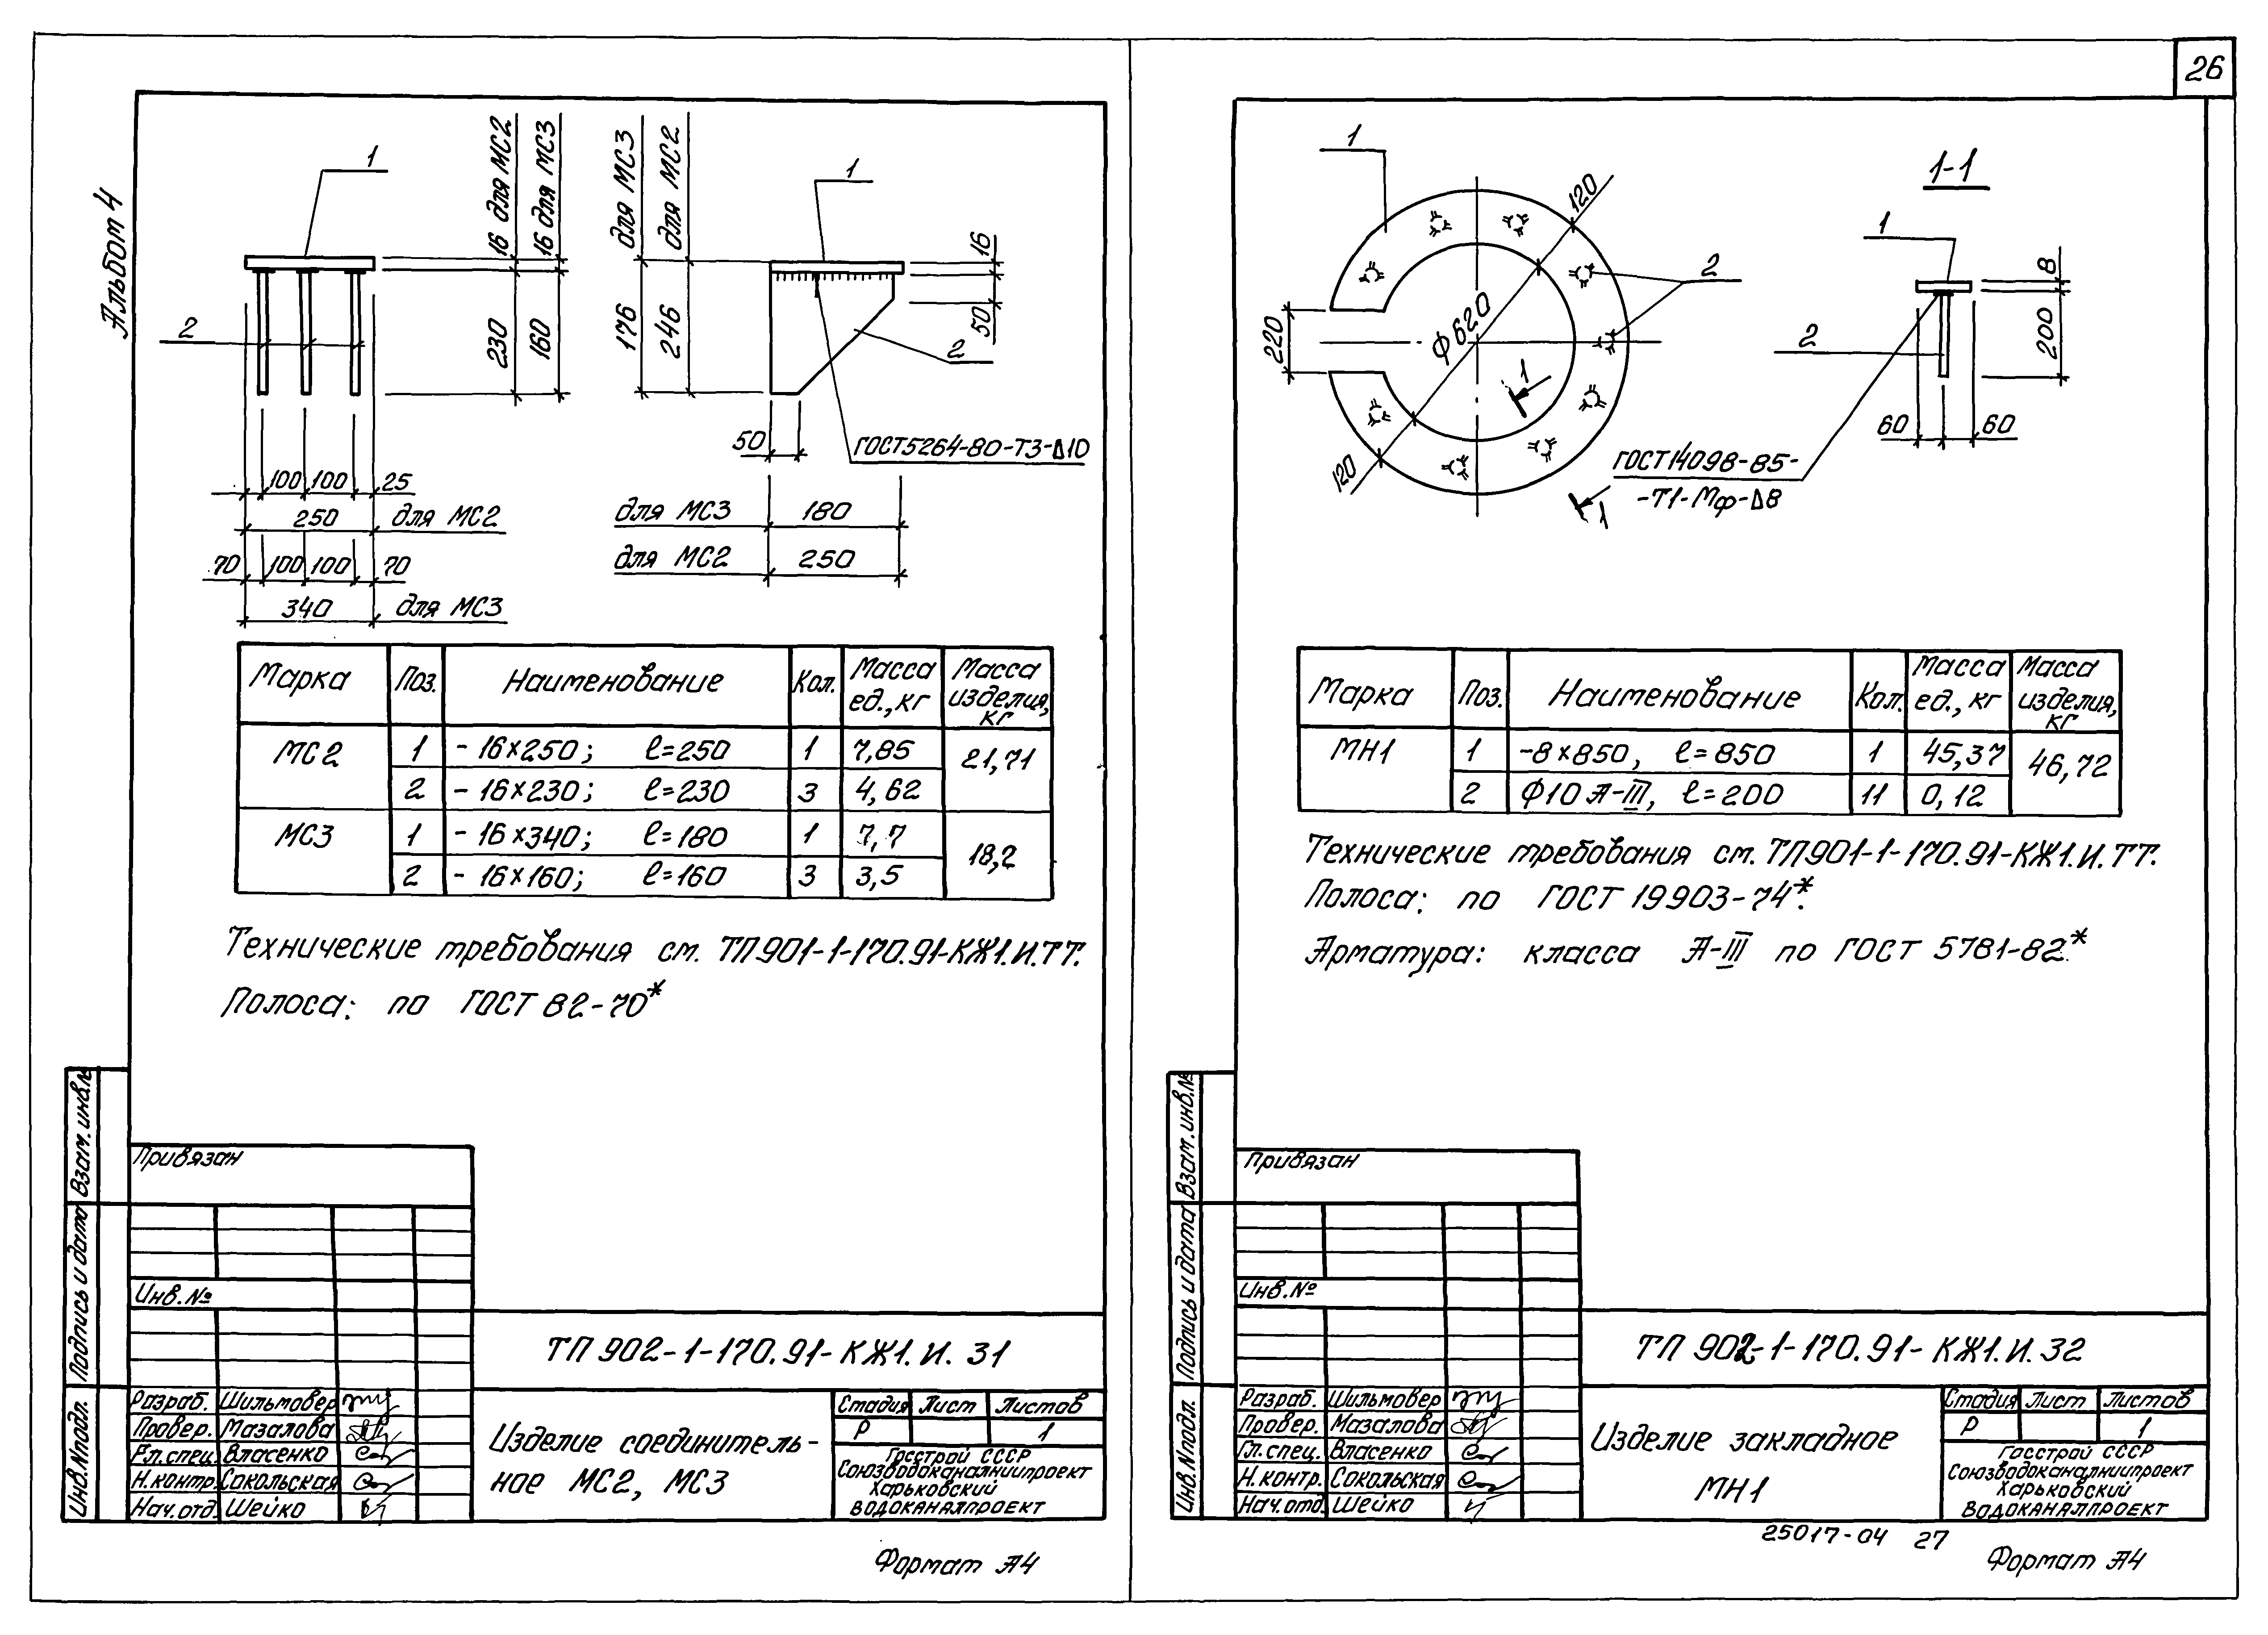 26
Альбом 4
1
2
16 для МС2
16 для МС3
230
160
100 100 25
250 для МС2
70 100 100 70
340 для МС3
для МС3
для МС2
176
246
1
16
50
2
50
ГОСТ5264-80-Т3-Δ10
для МС3 180
для МС2 250
Марка Поз. Наименование Кол. Масса ед., кг Масса изделия, кг
МС2 1 - 16×250; ℓ=250 1 7,85 21,71
2 - 16×230; ℓ=230 3 4,62
МС3 1 - 16×340; ℓ=180 1 7,7 18,2
2 - 16×160; ℓ=160 3 3,5
Технические требования см. ТП901-1-170.91-КЖ1.И.ТТ.
Полоса: по ГОСТ 82-70*
Взам. инв.№
Подпись и дата
Инв.Nподл.
Привязан
Инв.№
ТП 902-1-170.91-КЖ1.И. 31
Разраб. Шильмовер
Провер. Мазалова
Гл.спец. Власенко
Н.контр. Сокольская
Нач.отд. Шейко
Изделие соединитель-
ное МС2, МС3
Стадия Лист Листов
Р 1
Госстрой СССР
Союзводоканалниипроект
Харьковский
Водоканалпроект
Формат А4
1
120
2
220
Ф620
1
120
1
1-1
1
8
2
200
60 60
ГОСТ14098-85-
-Т1-Мф-Δ8
Марка Поз. Наименование Кол. Масса ед., кг Масса изделия, кг
МН1 1 -8×850, ℓ=850 1 45,37 46,72
2 Ф10 А-III, ℓ=200 11 0,12
Технические требования см. ТП901-1-170.91-КЖ1.И.ТТ.
Полоса: по ГОСТ 19903-74*.
Арматура: класса А-III по ГОСТ 5781-82*
Взам. инв.№
Подпись и дата
Инв.Nподл.
Привязан
Инв.№
ТП 902-1-170.91-КЖ1.И. 32
Разраб. Шильмовер
Провер. Мазалова
Гл.спец. Власенко
Н.контр. Сокольская
Нач.отд. Шейко
Изделие закладное
МН1
Стадия Лист Листов
Р 1
Госстрой СССР
Союзводоканалниипроект
Харьковский
Водоканалпроект
25017-04 27
Формат А4